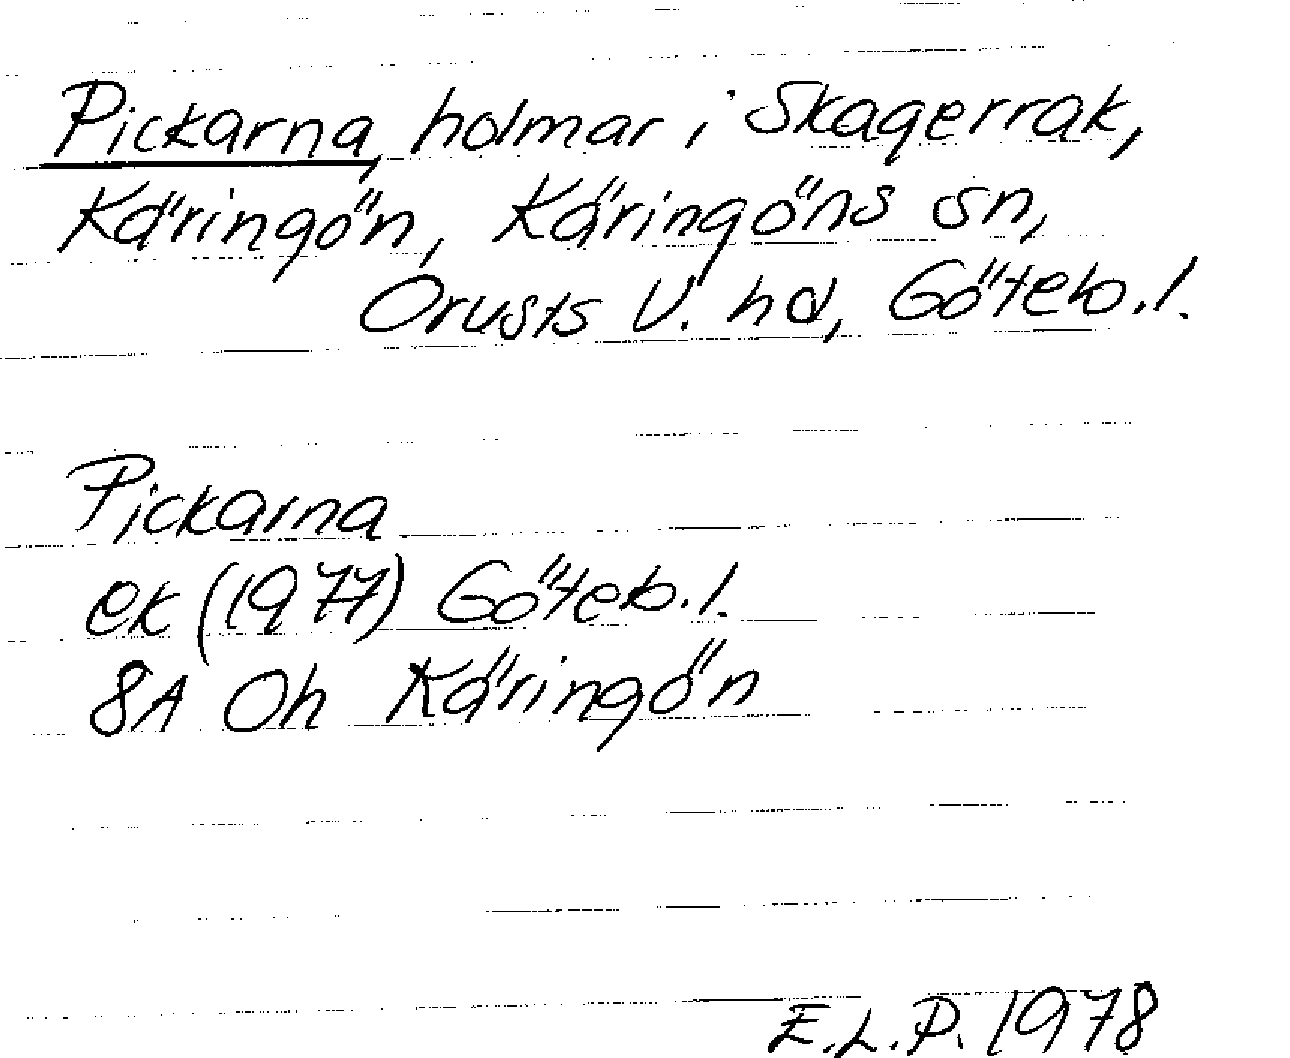 Pickarna, holmar i Skagerrak,
Käringön, Käringöns sn,
Orusts V. hd, Göteb.l.
Pickarna
ek (1977) Göteb.l.
8A 0h Käringön
E.L.P. 1978